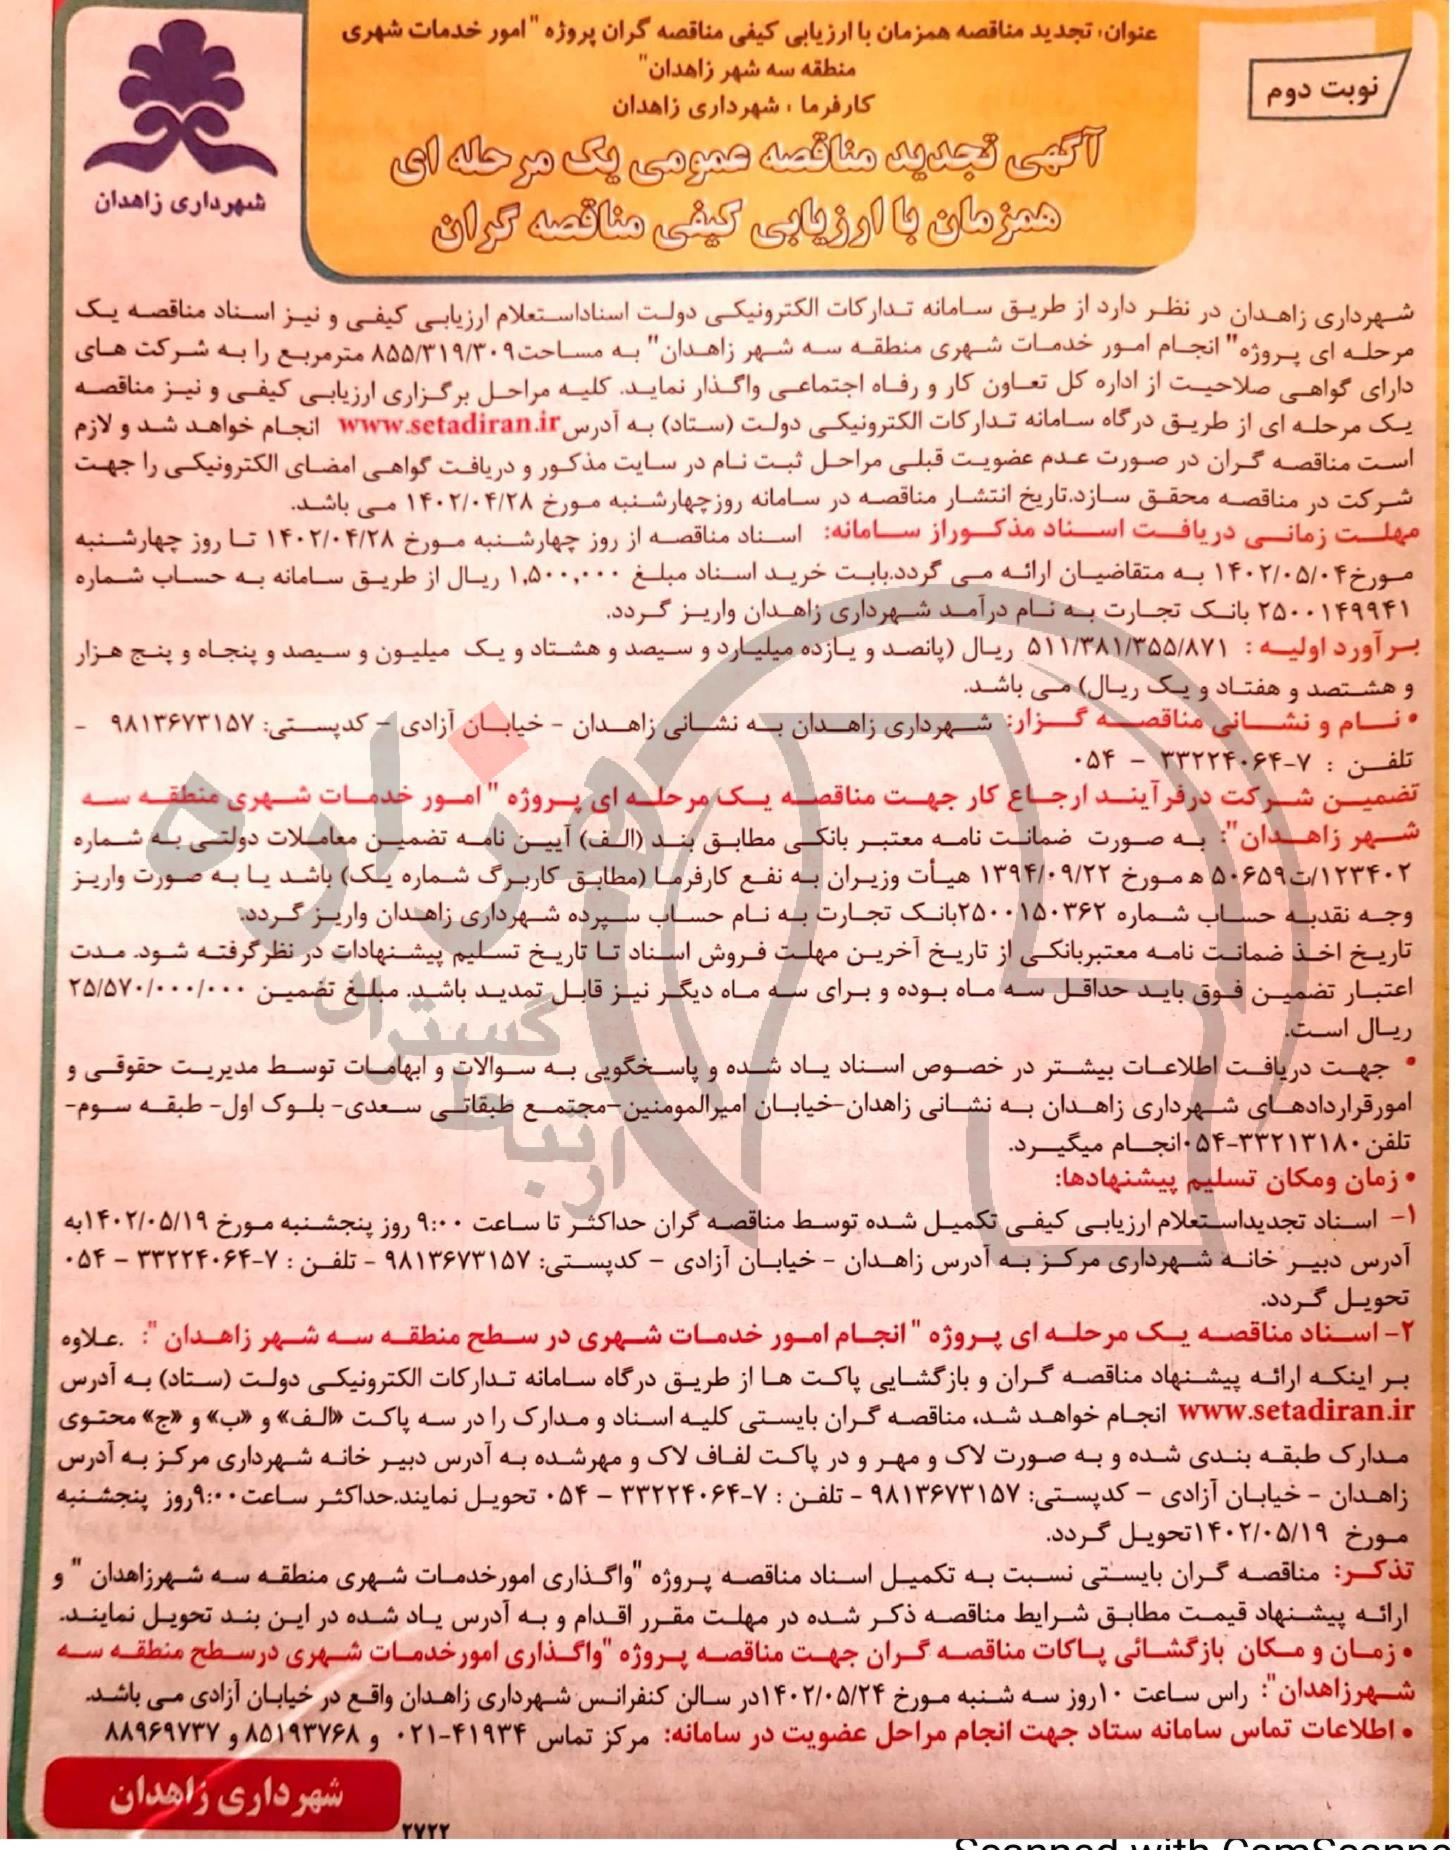 عنوان: تجدید مناقصه همزمان با ارزیابی کیفی مناقصه گران پروژه "امور خدمات شهری
منطقه سه شهر زاهدان"
کارفرما : شهرداری زاهدان
نوبت دوم
آگهی تجدید مناقصه عمومی یک مرحله ای
همزمان با ارزیابی کیفی مناقصه گران
شهرداری زاهدان
شهرداری زاهدان در نظر دارد از طریق سامانه تدارکات الکترونیکی دولت اسناداستعلام ارزیابی کیفی و نیز اسناد مناقصه یک
مرحله ای پروژه" انجام امور خدمات شهری منطقه سه شهر زاهدان" به مساحت۸۵۵/۳۱۹/۳۰۹ مترمربع را به شرکت های
دارای گواهی صلاحیت از اداره کل تعاون کار و رفاه اجتماعی واگذار نماید. کلیه مراحل برگزاری ارزیابی کیفی و نیز مناقصه
یک مرحله ای از طریق درگاه سامانه تدارکات الکترونیکی دولت (ستاد) به آدرس www.setadiran.ir انجام خواهد شد و لازم
است مناقصه گران در صورت عدم عضویت قبلی مراحل ثبت نام در سایت مذکور و دریافت گواهی امضای الکترونیکی را جهت
شرکت در مناقصه محقق سازد.تاریخ انتشار مناقصه در سامانه روزچهارشنبه مورخ ۱۴۰۲/۰۴/۲۸ می باشد.
مهلت زمانی دریافت اسناد مذکوراز سامانه: اسناد مناقصه از روز چهارشنبه مورخ ۱۴۰۲/۰۴/۲۸ تا روز چهارشنبه
مورخ۱۴۰۲/۰۵/۰۴ به متقاضیان ارائه می گردد.بابت خرید اسناد مبلغ ۱,۵۰۰,۰۰۰ ریال از طریق سامانه به حساب شماره
۲۵۰۰۱۴۹۹۴۱ بانک تجارت به نام درآمد شهرداری زاهدان واریز گردد.
برآورد اولیه : ۵۱۱/۳۸۱/۳۵۵/۸۷۱ ریال (پانصد و یازده میلیارد و سیصد و هشتاد و یک میلیون و سیصد و پنجاه و پنج هزار
و هشتصد و هفتاد و یک ریال) می باشد.
• نام و نشانی مناقصه گزار: شهرداری زاهدان به نشانی زاهدان - خیابان آزادی - کدپستی: ۹۸۱۳۶۷۳۱۵۷ -
تلفن : ۷-۳۳۲۲۴۰۶۴ - ۰۵۴
تضمین شرکت درفرآیند ارجاع کار جهت مناقصه یک مرحله ای پروژه " امور خدمات شهری منطقه سه
شهر زاهدان": به صورت ضمانت نامه معتبر بانکی مطابق بند (الف) آیین نامه تضمین معاملات دولتی به شماره
۱۲۳۴۰۲/ت۵۰۶۵۹ ه مورخ ۱۳۹۴/۰۹/۲۲ هیأت وزیران به نفع کارفرما (مطابق کاربرگ شماره یک) باشد یا به صورت واریز
وجه نقدبه حساب شماره ۲۵۰۰۱۵۰۳۶۲بانک تجارت به نام حساب سپرده شهرداری زاهدان واریز گردد.
تاریخ اخذ ضمانت نامه معتبربانکی از تاریخ آخرین مهلت فروش اسناد تا تاریخ تسلیم پیشنهادات در نظرگرفته شود. مدت
اعتبار تضمین فوق باید حداقل سه ماه بوده و برای سه ماه دیگر نیز قابل تمدید باشد. مبلغ تضمین ۲۵/۵۷۰/۰۰۰/۰۰۰
ریال است.
• جهت دریافت اطلاعات بیشتر در خصوص اسناد یاد شده و پاسخگویی به سوالات و ابهامات توسط مدیریت حقوقی و
امورقراردادهای شهرداری زاهدان به نشانی زاهدان-خیابان امیرالمومنین-مجتمع طبقاتی سعدی- بلوک اول- طبقه سوم-
تلفن ۳۳۲۱۳۱۸۰-۰۵۴انجام میگیرد.
• زمان ومکان تسلیم پیشنهادها:
۱- اسناد تجدیداستعلام ارزیابی کیفی تکمیل شده توسط مناقصه گران حداکثر تا ساعت ۹:۰۰ روز پنجشنبه مورخ ۱۴۰۲/۰۵/۱۹به
آدرس دبیر خانه شهرداری مرکز به آدرس زاهدان - خیابان آزادی - کدپستی: ۹۸۱۳۶۷۳۱۵۷ - تلفن : ۷-۳۳۲۲۴۰۶۴ - ۰۵۴
تحویل گردد.
۲- اسناد مناقصه یک مرحله ای پروژه " انجام امور خدمات شهری در سطح منطقه سه شهر زاهدان ": .علاوه
بر اینکه ارائه پیشنهاد مناقصه گران و بازگشایی پاکت ها از طریق درگاه سامانه تدارکات الکترونیکی دولت (ستاد) به آدرس
www.setadiran.ir انجام خواهد شد، مناقصه گران بایستی کلیه اسناد و مدارک را در سه پاکت «الف» و «ب» و «ج» محتوی
مدارک طبقه بندی شده و به صورت لاک و مهر و در پاکت لفاف لاک و مهرشده به آدرس دبیر خانه شهرداری مرکز به آدرس
زاهدان - خیابان آزادی - کدپستی: ۹۸۱۳۶۷۳۱۵۷ - تلفن : ۷-۳۳۲۲۴۰۶۴ - ۰۵۴ تحویل نمایند.حداکثر ساعت۹:۰۰روز پنجشنبه
مورخ ۱۴۰۲/۰۵/۱۹تحویل گردد.
تذکر: مناقصه گران بایستی نسبت به تکمیل اسناد مناقصه پروژه "واگذاری امورخدمات شهری منطقه سه شهرزاهدان " و
ارائه پیشنهاد قیمت مطابق شرایط مناقصه ذکر شده در مهلت مقرر اقدام و به آدرس یاد شده در این بند تحویل نمایند.
• زمان و مکان بازگشائی پاکات مناقصه گران جهت مناقصه پروژه "واگذاری امورخدمات شهری درسطح منطقه سه
شهرزاهدان": راس ساعت ۱۰روز سه شنبه مورخ ۱۴۰۲/۰۵/۲۴در سالن کنفرانس شهرداری زاهدان واقع در خیابان آزادی می باشد.
• اطلاعات تماس سامانه ستاد جهت انجام مراحل عضویت در سامانه: مرکز تماس ۴۱۹۳۴-۰۲۱ و ۸۵۱۹۳۷۶۸ و ۸۸۹۶۹۷۳۷
شهرداری زاهدان
۲۷۲۲
هزاره